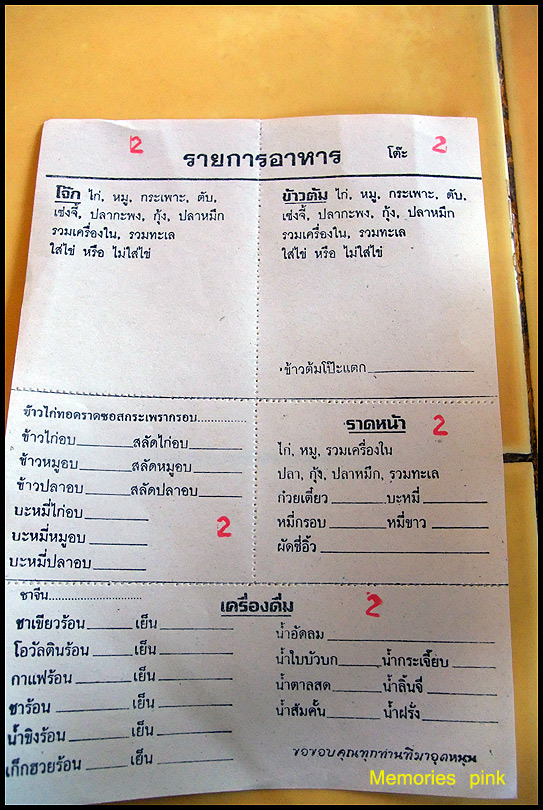 2 รายการอาหาร โต๊ะ 2
โจ๊ก ไก่, หมู, กระเพาะ, ตับ,
เซ่งจี้, ปลากะพง, กุ้ง, ปลาหมึก
รวมเครื่องใน, รวมทะเล
ใส่ไข่ หรือ ไม่ใส่ไข่
ข้าวต้ม ไก่, หมู, กระเพาะ, ตับ,
เซ่งจี้, ปลากะพง, กุ้ง, ปลาหมึก
รวมเครื่องใน, รวมทะเล
ใส่ไข่ หรือ ไม่ใส่ไข่
ข้าวต้มโป๊ะแตก
ข้าวไก่ทอดราดซอสกระเพรากรอบ
ข้าวไก่อบ สลัดไก่อบ
ข้าวหมูอบ สลัดหมูอบ
ข้าวปลาอบ สลัดปลาอบ
บะหมี่ไก่อบ
บะหมี่หมูอบ
บะหมี่ปลาอบ
2
ราดหน้า 2
ไก่, หมู, รวมเครื่องใน
ปลา, กุ้ง, ปลาหมึก, รวมทะเล
ก๋วยเตี๋ยว บะหมี่
หมี่กรอบ หมี่ขาว
ผัดซี่อิ้ว
เครื่องดื่ม 2
ชาจีน
ชาเขียวร้อน เย็น
โอวัลตินร้อน เย็น
กาแฟร้อน เย็น
ชาร้อน เย็น
น้ำขิงร้อน เย็น
เก็กฮวยร้อน เย็น
น้ำอัดลม
น้ำใบบัวบก น้ำกระเจี๊ยบ
น้ำตาลสด น้ำลิ้นจี่
น้ำส้มคั้น น้ำฝรั่ง
ขอขอบคุณทุกท่านที่มาอุดหนุน
Memories pink